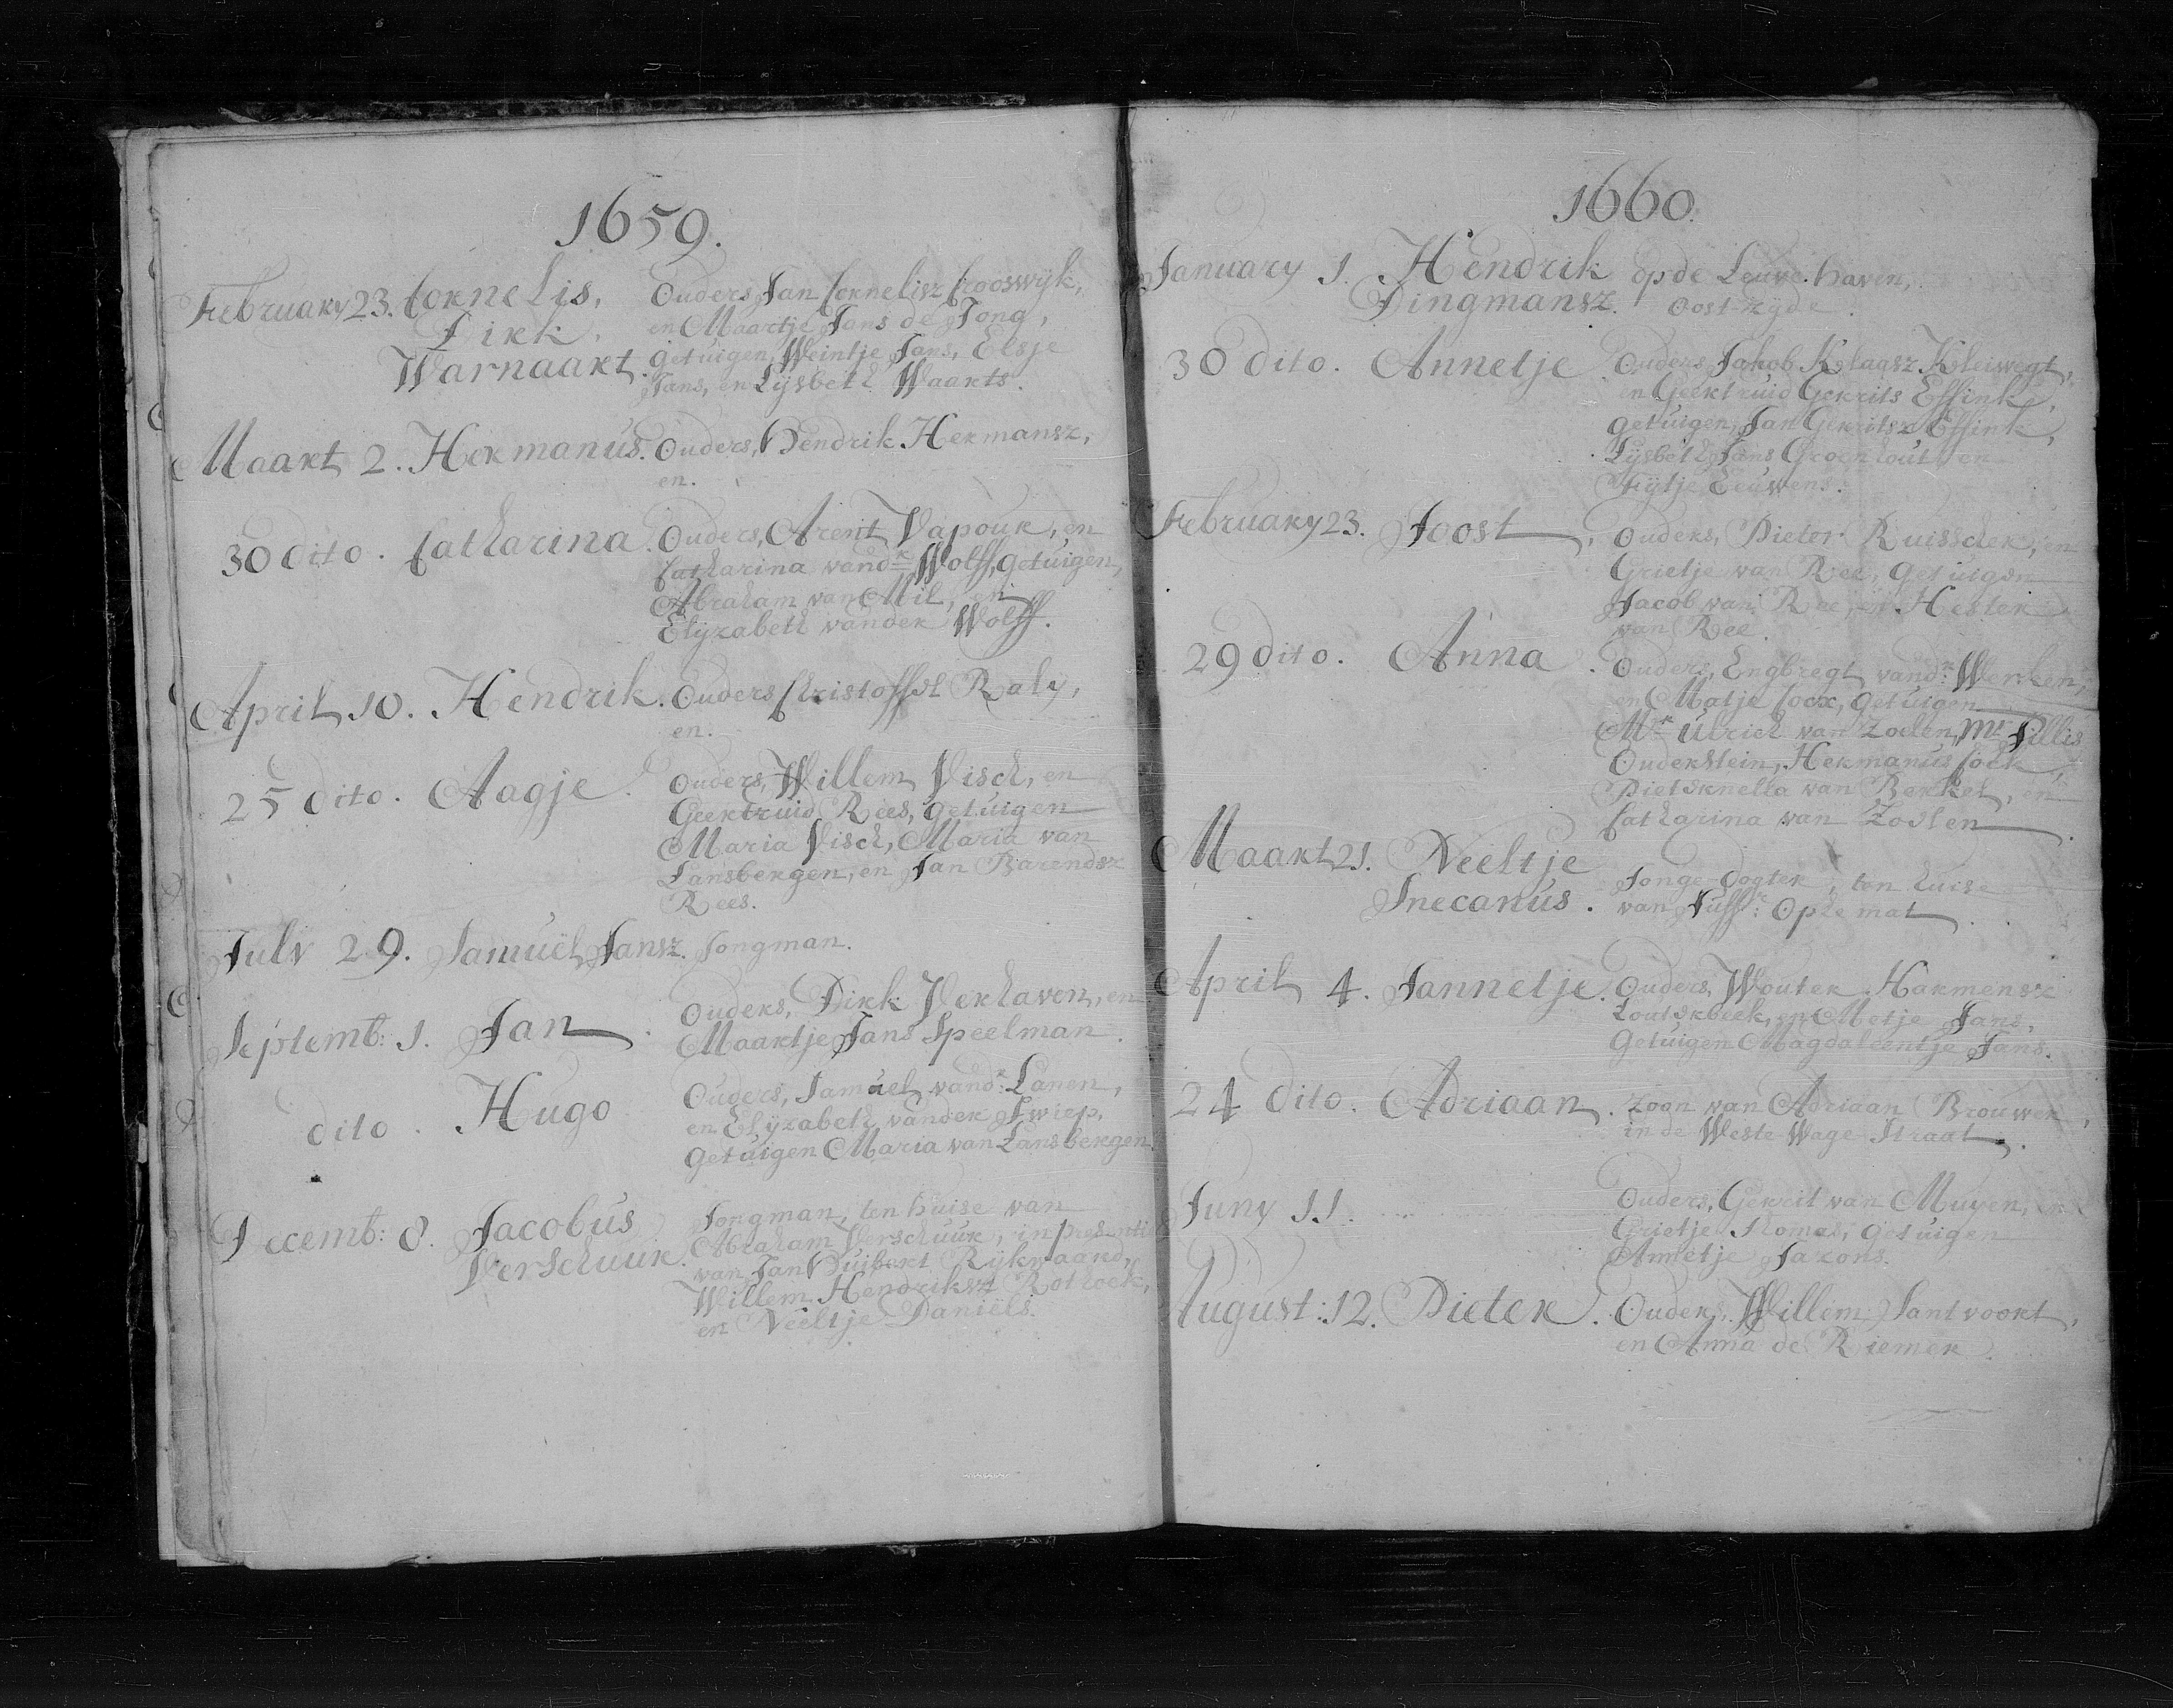 1659.
February 23. Cornelis, Ouders Jan Cornelisz Crooswijk,
Dirk, en Maartje Jans de Jong,
Warnaart. getuigen, Weintje Jans, Elsje
Jans, en Lysbeth Waarts.
Maart 2. Hermanus. Ouders, Hendrik Hermansz,
en.
30 dito. Catharina. Ouders, Arent Vapour, en
Catharina vandr Wolff, getuigen,
Abraham van Mil, en
Elyzabeth vander Wolff.
April 10. Hendrik. Ouders Christoffel Raly,
en.
25 dito. Aagje. Ouders, Willem Visch, en
Geertruid Rees, getuigen
Maria Visch, Maria van
Lansbergen, en Jan Barendsz
Rees.
July 29. Samuël Jansz. Jongman.
Septemb: 1. Jan. Ouders, Dirk Verhaven, en
Maartje Jans Speelman.
dito. Hugo Ouders, Samuel vandr: Lanen,
en Elyzabeth vander Swiep,
getuigen Maria van Lansbergen.
Decemb: 8. Jacobus Jongman, ten huise van
Verschuur. Abraham Verschuur, in presenti
van Jan Huibert Rykwaard,
Willem Hendriksz Rothoek,
en Neeltje Daniëls.
1660.
January 1. Hendrik op de Leuve-haven,
Dingmansz. Oost-zyde.
30 dito. Annetje. Ouders, Jakob Klaasz Kleiwegt,
en Geertruid Gerrits Essink,
getuigen, Jan Gerritsz Essink,
Lysbeth Jans Groenhout, en
Fytje Eeuwens.
February 23. Joost. Ouders, Pieter Ruisscher, en
Grietje van Ree, getuigen
Jacob van Ree, en Hester
van Ree.
29 dito. Anna. Ouders, Engbregt vandr: Werken,
en Matje Cocx, getuigen
Mr Ulrich van Zoelen, Mr Pillis
Ouderstein, Hermanus Cock,
Pieternella van Berkel, en
Catharina van Zoelen.
Maart 21. Neeltje Jonge-dogter, ten huise
Snecanus. van Juffr: Ophemat.
April 4. Jannetje. Ouders, Wouter Harmensz
Louterbeek, en Metje Jans,
Getuigen Magdaleentje Jans.
24 dito. Adriaan. Zoon van Adriaan Brouwer,
in de Weste Wage-Straat.
Juny 11. Ouders, Gerrit van Muyen, en
Grietje Thomas, getuigen
Annetje Jazons.
August: 12. Pieter. Ouders, Willem Santvoort,
en Anna de Riemer.